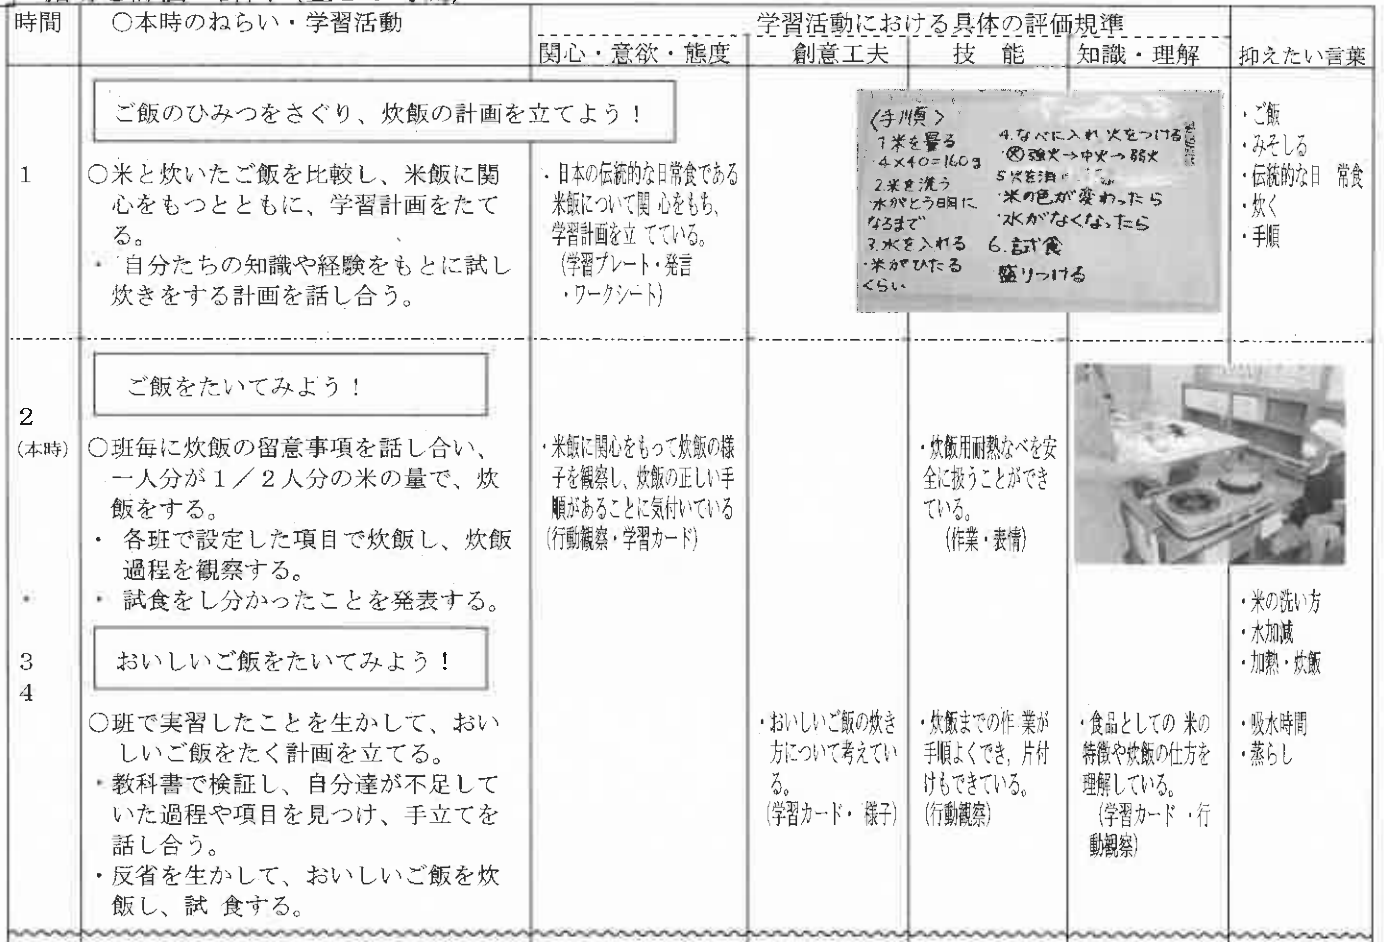 時間
○本時のねらい・学習活動
学習活動における具体の評価規準
関心・意欲・態度
創意工夫
技 能
知識・理解
抑えたい言葉
1
ご飯のひみつをさぐり、炊飯の計画を立てよう！
○米と炊いたご飯を比較し、米飯に関
心をもつとともに、学習計画をたて
る。
・ 自分たちの知識や経験をもとに試し
炊きをする計画を話し合う。
・日本の伝統的な日常食である
米飯について関 心をもち、
学習計画を立 てている。
(学習プレート・発言
・ワークシート)
〈手順〉
1米を量る
4×40=160g
2.米を洗う
水がとう明に
なるまで
3.水を入れる
・米がひたる
くらい
4.なべに入れ 火をつける
強火→中火→弱火
5火を消
・米の色が変わったら
・水がなくなったら
6.試食
盛りつける
・ご飯
・みそしる
・伝統的な日 常食
・炊く
・手順
2
(本時)
ご飯をたいてみよう！
○班毎に炊飯の留意事項を話し合い、
一人分が１／２人分の米の量で、炊
飯をする。
・ 各班で設定した項目で炊飯し、炊飯
過程を観察する。
・ 試食をし分かったことを発表する。
・米飯に関心をもって炊飯の様
子を観察し、炊飯の正しい手
順があることに気付いている
(行動観察・学習カード)
・炊飯用耐熱なべを安
全に扱うことができ
ている。
(作業・表情)
・米の洗い方
・水加減
・加熱・炊飯
3
4
おいしいご飯をたいてみよう！
○班で実習したことを生かして、おい
しいご飯をたく計画を立てる。
・教科書で検証し、自分達が不足して
いた過程や項目を見つけ、手立てを
話し合う。
・反省を生かして、おいしいご飯を炊
飯し、試 食する。
・おいしいご飯の炊き
方について考えてい
る。
(学習カード・ 様子)
・炊飯までの作 業が
手順よくでき，片付
けもできている。
(行動観察)
・食品としての 米の
特徴や炊飯の仕方を
理解している。
(学習カード ・行
動観察)
・吸水時間
・蒸らし